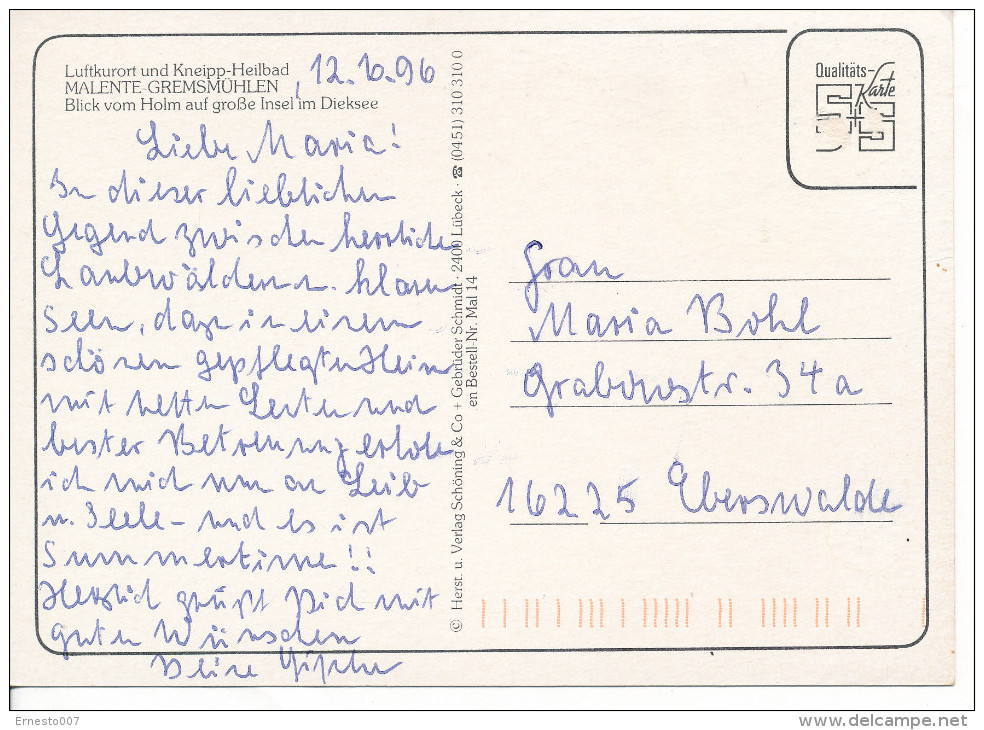 Luftkurort und Kneipp-Heilbad
MALENTE-GREMSMÜHLEN, 12.6.96
Blick vom Holm auf große Insel im Dieksee
Liebe Maria!
In dieser lieblichen
Gegend zwischen herrliche
Laubwäldern u. klaren
Seen, dazu in einem
schönen gepflegten Heim
mit netten Leuten und
bester Betreuung erhole
ich mich nun an Leib
u. Seele - und es ist
Summertime!!
Herzlich grüßt Dich mit
guten Wünschen
Deine
© Herst. u. Verlag Schöning & Co + Gebrüder Schmidt · 2400 Lübeck · ☎ (0451) 310 310 0
en Bestell-Nr. Mal 14
Qualitäts-
Karte
S+S
Frau
Maria Bohl
Grabowstr. 34a
16225 Eberswalde
Ernesto007
delcampe.net